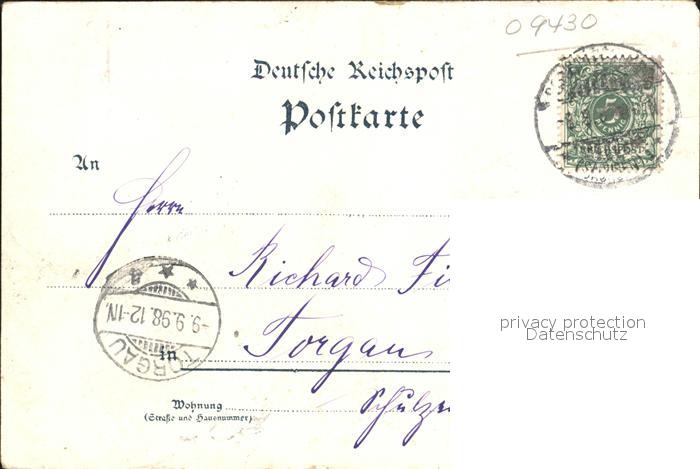 09430
Deutsche Reichspost
Postkarte
An
Herrn
Richard Fi
-9.9.98.12-1N.
TORGAU
in Torgau
Wohnung
(Straße und Hausnummer)
Schulze
5
privacy protection
Datenschutz